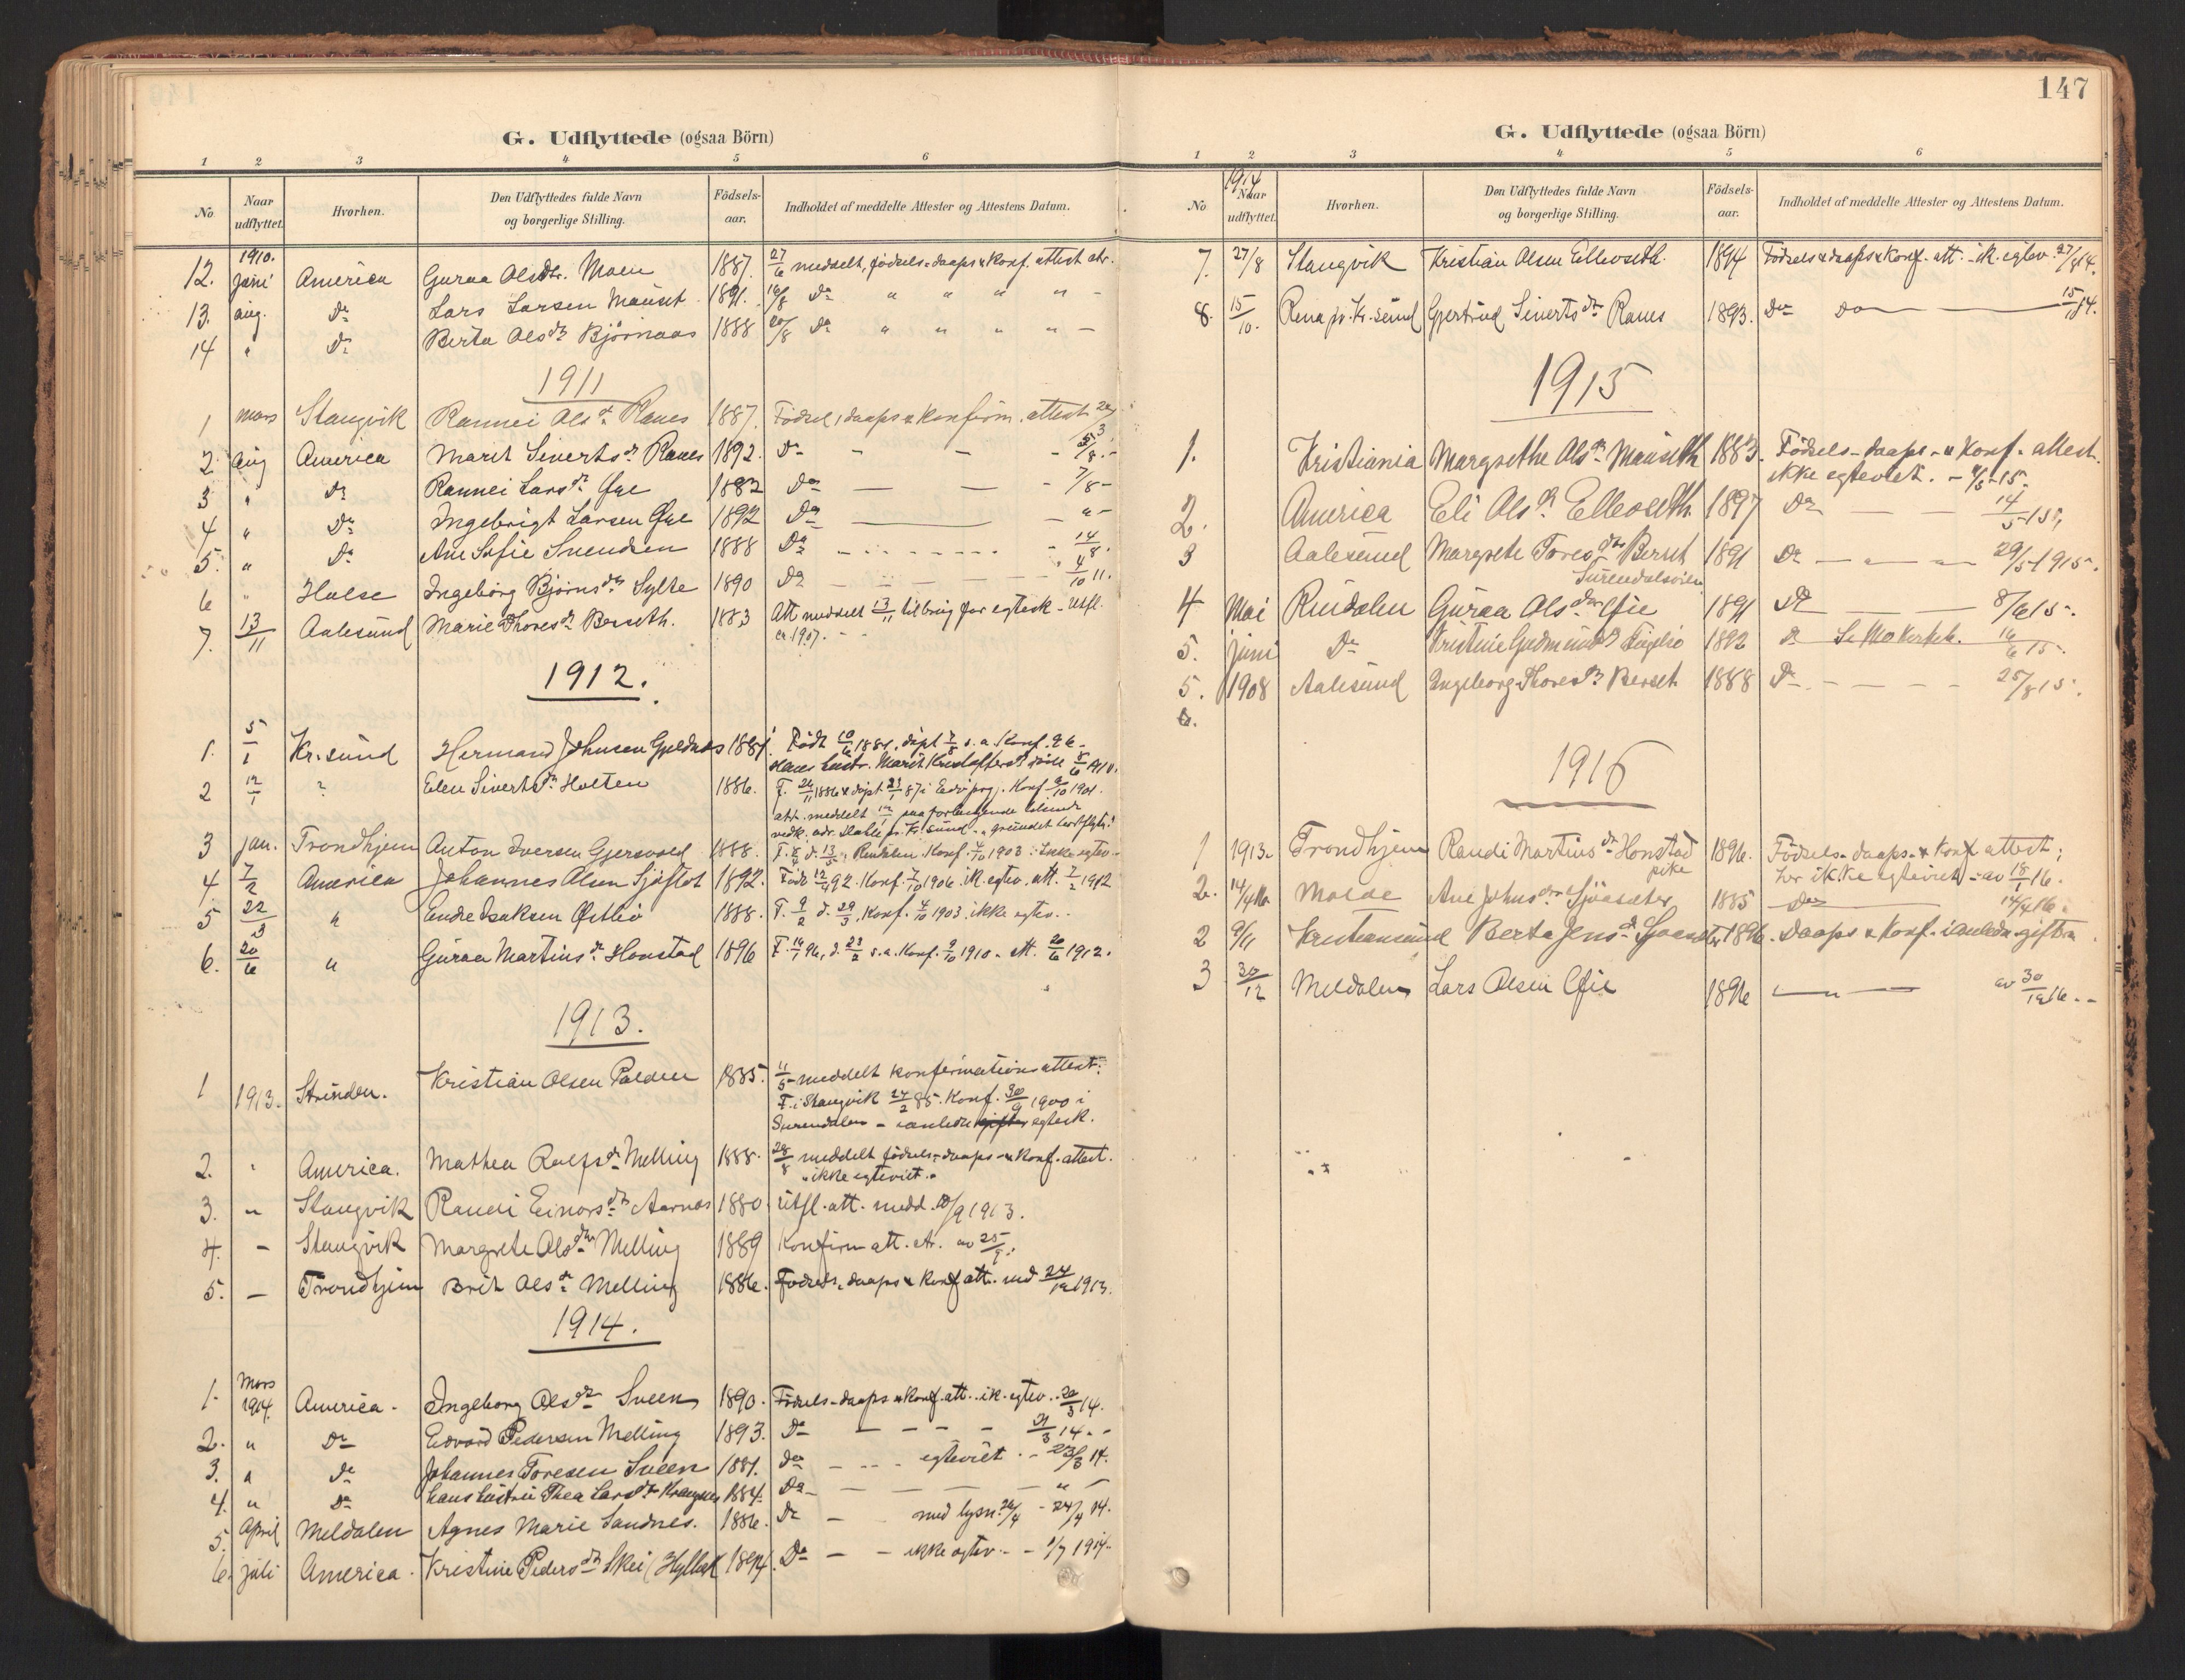 G. Udflyttede (ogsaa Börn)
1 2 3 4 5 6
No Naar udflyttet. Hvorhen. Den Udflyttedes fulde Navn og borgerlige Stilling. Födsels-aar. Indholdet af meddelte Attester og Attestens Datum.
1910.
12. juni America Guraa Olsdtr. Moen 1887. 27/6 meddelt, fødsels-daaps & konf. attest
13. aug. Do Lars Larsen Mauset 1891. 16/8 Do " " " " -
14 " Do Berta Olsdtr Bjørnaas 1888 20/8 Do " " " " -
1911
1 mars Stangvik Rannei Olsdr Ranes 1887. Födsel, daaps & konfirm. attest
2 Aug America Marit Sivertsdr Ranes 1892. Do - - - 5/8 -
3 " Do Rannei Larsdr Øye 1882 Do — — - 7/8 -
4 " Do Ingebrigt Larsen Øye 1892 Do — — "-
5. " Do Ane Sofie Svendsen 1888 Do - - - 14/8.
6 " Halse Ingeborg Bjørnsdtr Sylte 1890 Do - - - 4/10 11.
7. 13/11 Aalesund Marie Thoresdr Berseth. 1883 Att meddelt 13/11 til brug for egtesk - Utfl.
er 1907. - -
1912.
1. 5/1 Kr.sund Hermand Johnsen Gjeldnes 1881. Født 10/6 1881, døpt 7/8 s.a. Konf. 96 -
2 12/1 " Elen Sivertsdr Holten 1886. F. 26/11 1886 & døpt 23/1 87 i Konf 6/10 1901.
att. meddelt 12/1 paa forlangende
3 jan. Trondhjem Anton Iversen Gjersvold 1888. Rindalen Konf. 4/10 1903. Ikke egtev -
4 7/2 America Johannes Olsen Sjøflot 1892. Født 12/4 92. Konf. 7/10 1906. ik. egtev. att. 7/2 1912
5 22/3 " Endre Isaksen Østbø 1888. F. 9/2 d. 29/3. Konf. 4/10 1903. ikke egtev..
6. 20/6 " Guraa Martinsdr Honstad 1896 F. 14/1 96, d. 23/2 s.a. Konf. 9/10 1910. att. 20/6 1912.
1913.
1 1913. Strinden. Kristian Olsen Polden 1885. 11/5 meddelt konfirmationsattest:
F. i Stangvik 24/2 85. Konf. 30/9 1900 i
Surendalen - i anledn egtesk.
2. " America. Mathea Rolfsdr Melling 1888. 28/8 meddelt fødsels-daaps- & konf. attest.
"ikke egteviet."
3. " Stangvik Randi Einarsdtr Aarnes 1880. Utfl. att. medd. 10/9 1913.
4. - Stangvik Margrete Olsdtr Melling 1889 Konfirm att. av 25/9.
5. — Trondhjem Brit Olsdr Melling 1886. Fødsels, daaps & konf att. 24/12 1913.
1914.
1. Mars 1914. America. Ingeborg Olsdtr Sveen 1890. Födsels-daaps & konf. att.. ik. egtev. 20/3 14.
2. " Do Edvard Pedersen Melling 1893. Do — - - - 21/3 14.-
3. " Do Johannes Toresen Sveen 1881. Do - - - egteviet - 23/3 14.
4. " Do hans hustru Thea Larsdtr 1884. Do — — — " -
5. April Meldalen Agnes Marie Sandnes. 1886. Do - med lysn. 26/4 - 24/4 14.
6. juli America. Kristine Pedersdtr Skei (Hyllset 1894. Do - - ikke egtev. - 1/7 1914.
147
G. Udflyttede (ogsaa Börn)
1 2 3 4 5 6
1914
No Naar udflyttet. Hvorhen. Den Udflyttedes fulde Navn og borgerlige Stilling. Födsels-aar. Indholdet af meddelte Attester og Attestens Datum.
7. 27/8 Stangvik Kristian Olsen Ellevseth. 1894 Födsels & daaps & konf. att. - ik. egtev. 27/8 14.
8. 15/10. Rena pr. Kr.sund Gjertrud Sivertsdtr Ranes 1893. Do Do — 15/ 14.
1915
1. Kristiania Margrethe Olsdtr Mauseth 1883. Födsels-daaps- & konf. attest.
ikke egteviet.
2. America Eli Olsdr Ellevseth. 1897 Do — — 14/5 15,
3 Aalesund Margrete Toresdtr Berset 1891 Do — " — 29/5 1915.
Surendalsøien
4 Mai Rindalen Guraa Olsdtr Øie 1891 Do — 8/6 15.
5. juni Do Kristine Gudmundsdr 1892 Do 16/6 15.
5. 1908 Aalesund Ingeborg Thoresdtr Berset 1888 Do - - - 25/8 15.
6.
1916
1 1913. Trondhjem Randi Martinsdr Honstad 1896. Födsels-daaps- & konf attest;
pike
ikke egteviet - av 18/1 16.
2. 14/4 16. Molde Ane Johnsdtr Sjöasæter 1885 Do 14/4 16.
2 9/11 Kristiansund Berta Jensd Sjöasæter 1896. Daaps & Konf. i anledn. gifterm
3 30/12 Meldalen Lars Olsen Øie 1896 — " — av 30/12 16. -